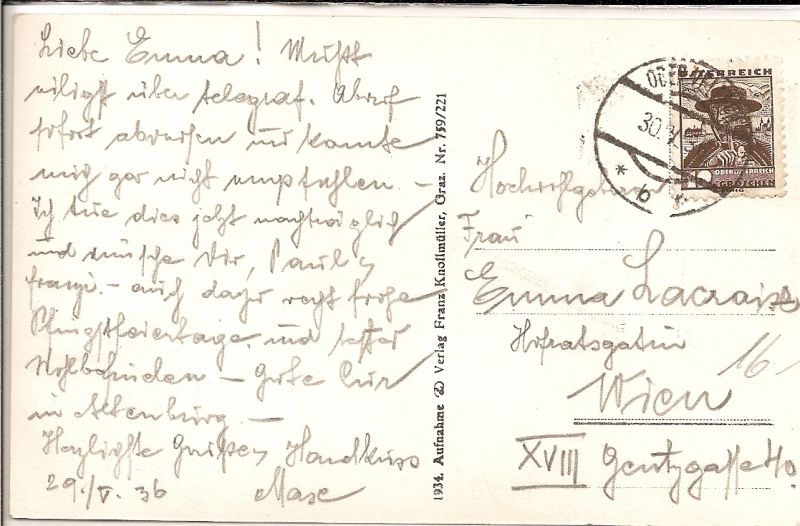 Liebe Emma! Mußt
über telegraf. Abruf
sofort abreisen und konnte
mich gar nicht empfehlen. —
Ich tue dies jetzt nachträglich
und wünsche Dir, Paul,
Franzi. — auch dazu recht frohe
Pfingstfeiertage und
Wohlbefinden — Gute Cur
in Altenburg. —
Herzlichste Grüße, Handkuss
29./V. 36
1934. Aufnahme Verlag Franz Knollmüller, Graz. Nr. 759/221
ÖSTERREICH
OBERÖSTERREICH
GROSCHEN
30.
* b
Hochwohlgeboren
Frau
Emma
Hofratsgattin
16
Wien
XVIII Gentzgasse 40.